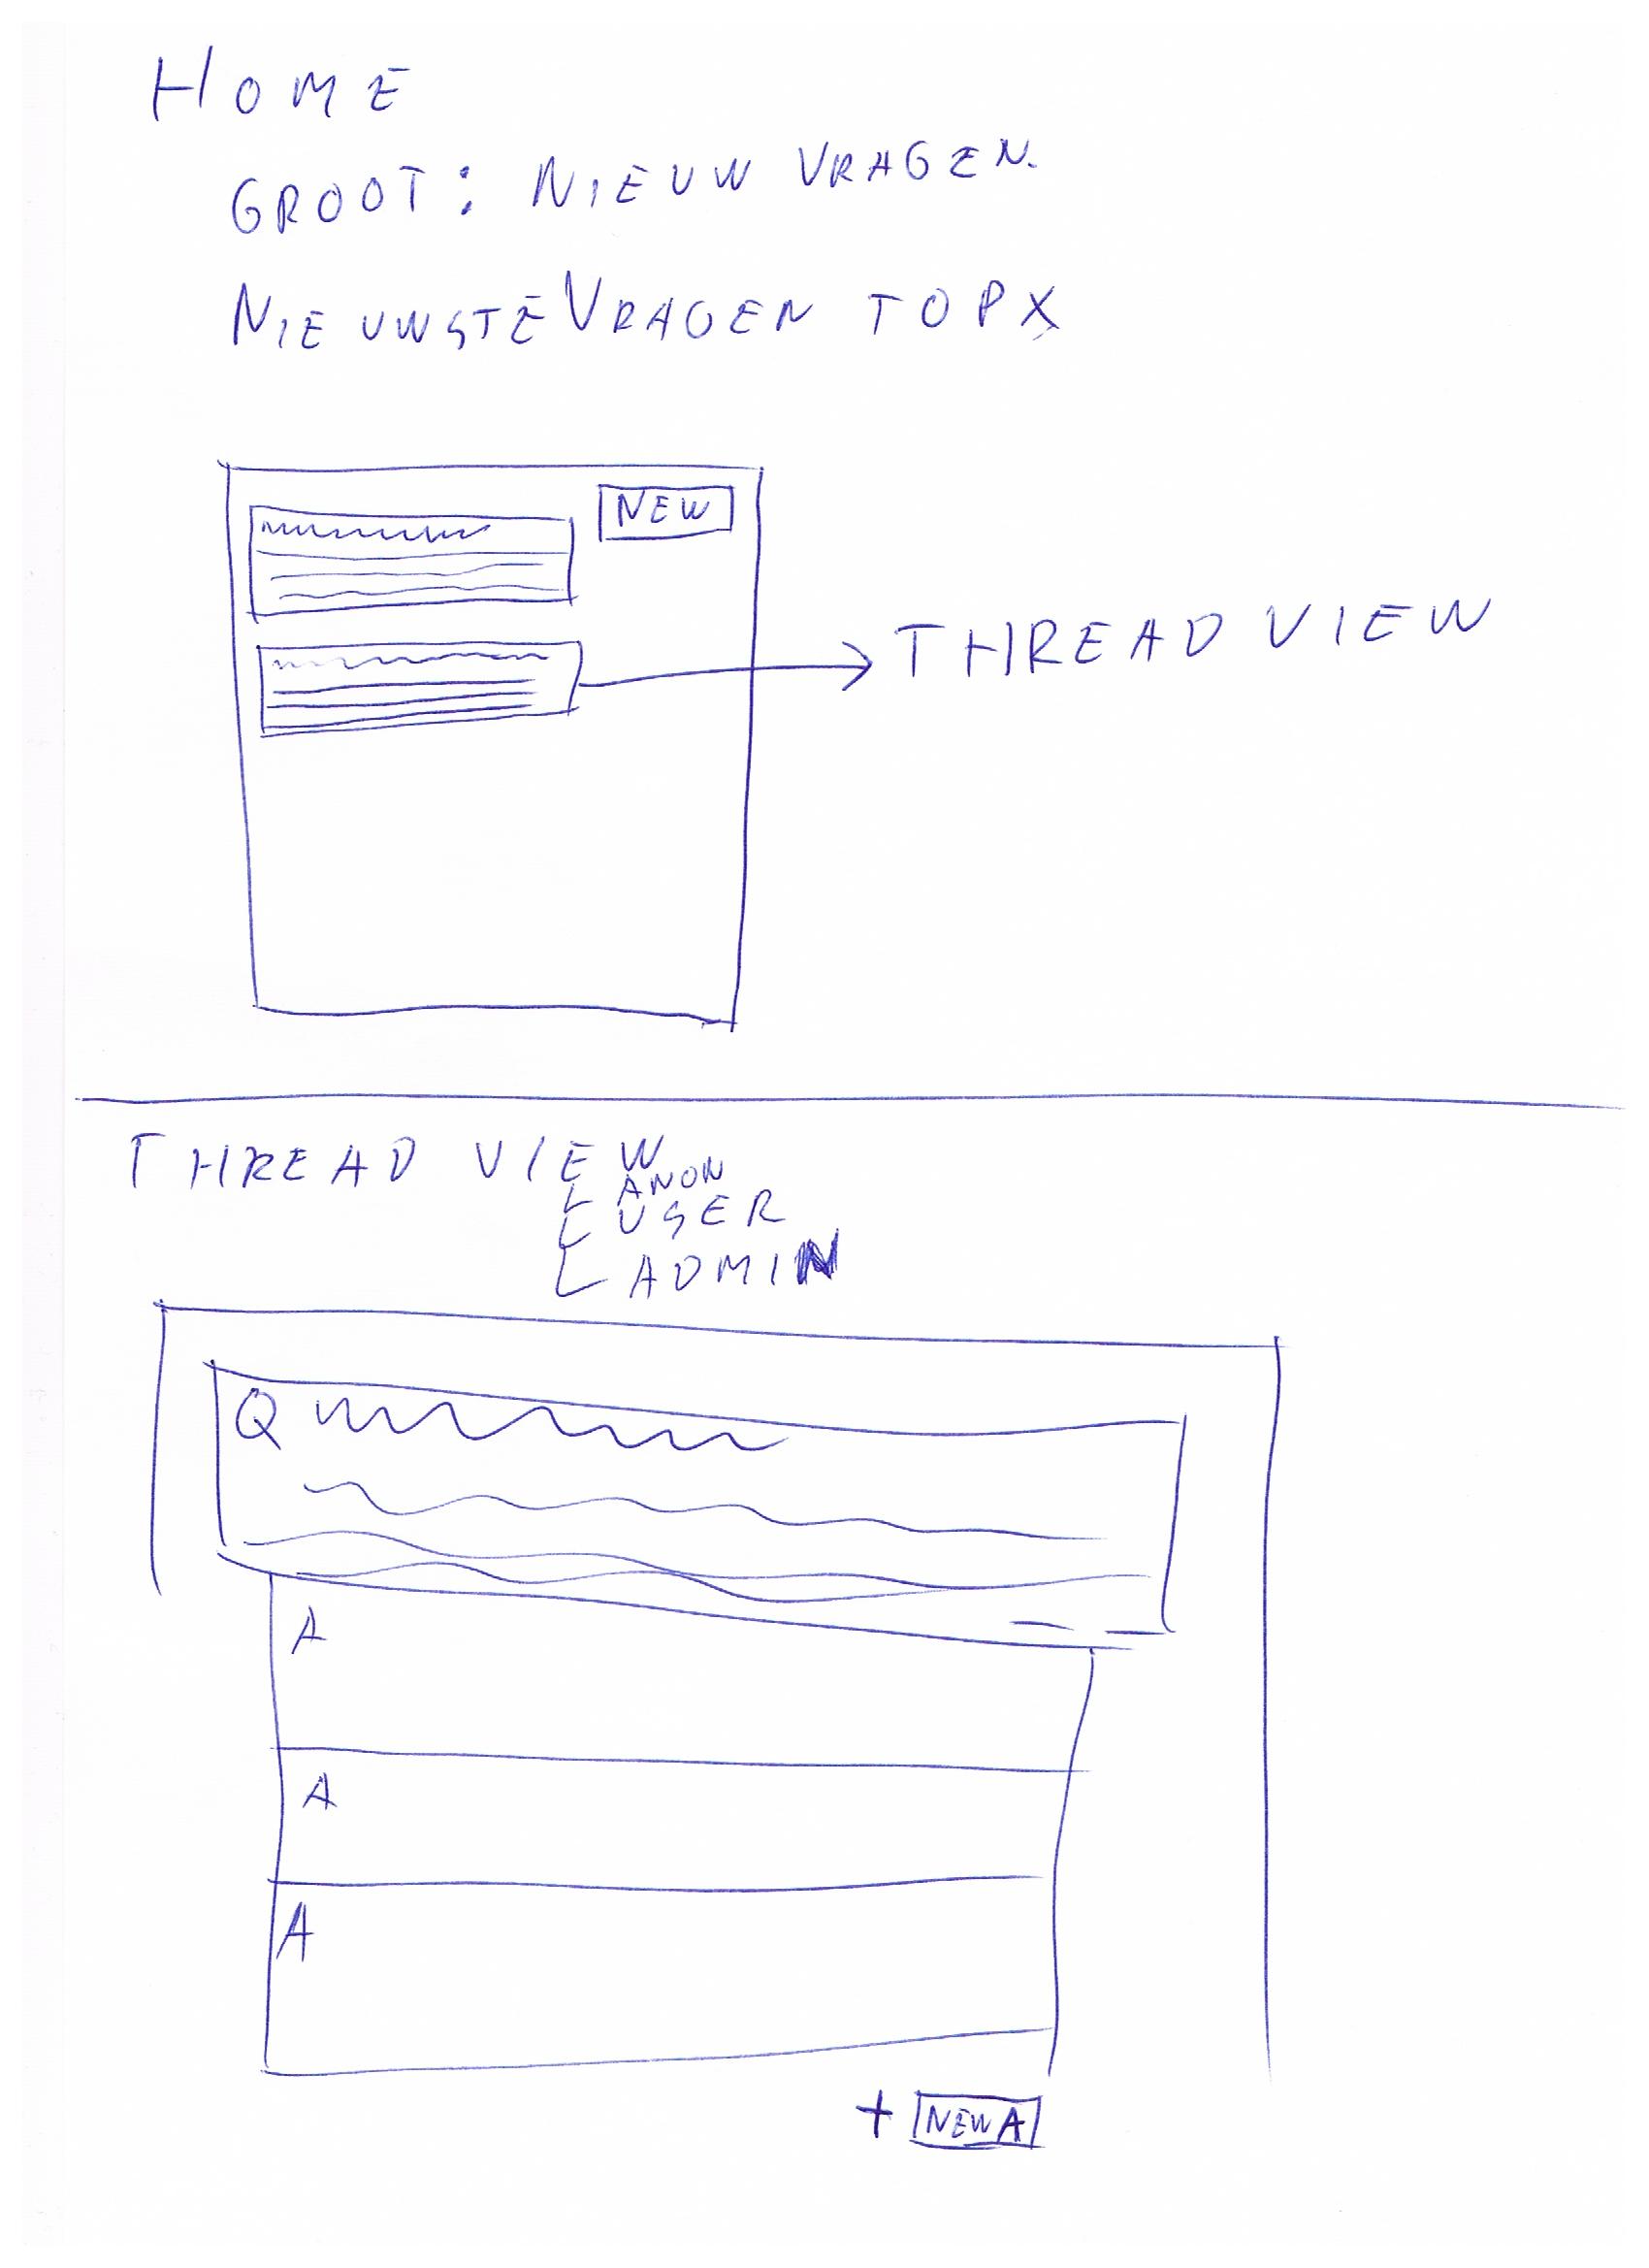 HOME
GROOT: NIEUW VRAGEN.
NIEUWSTE VRAGEN TOPX
NEW
THREAD VIEW
THREAD VIEW
ANON
USER
ADMIN
Q
A
A
A
+ NEW A